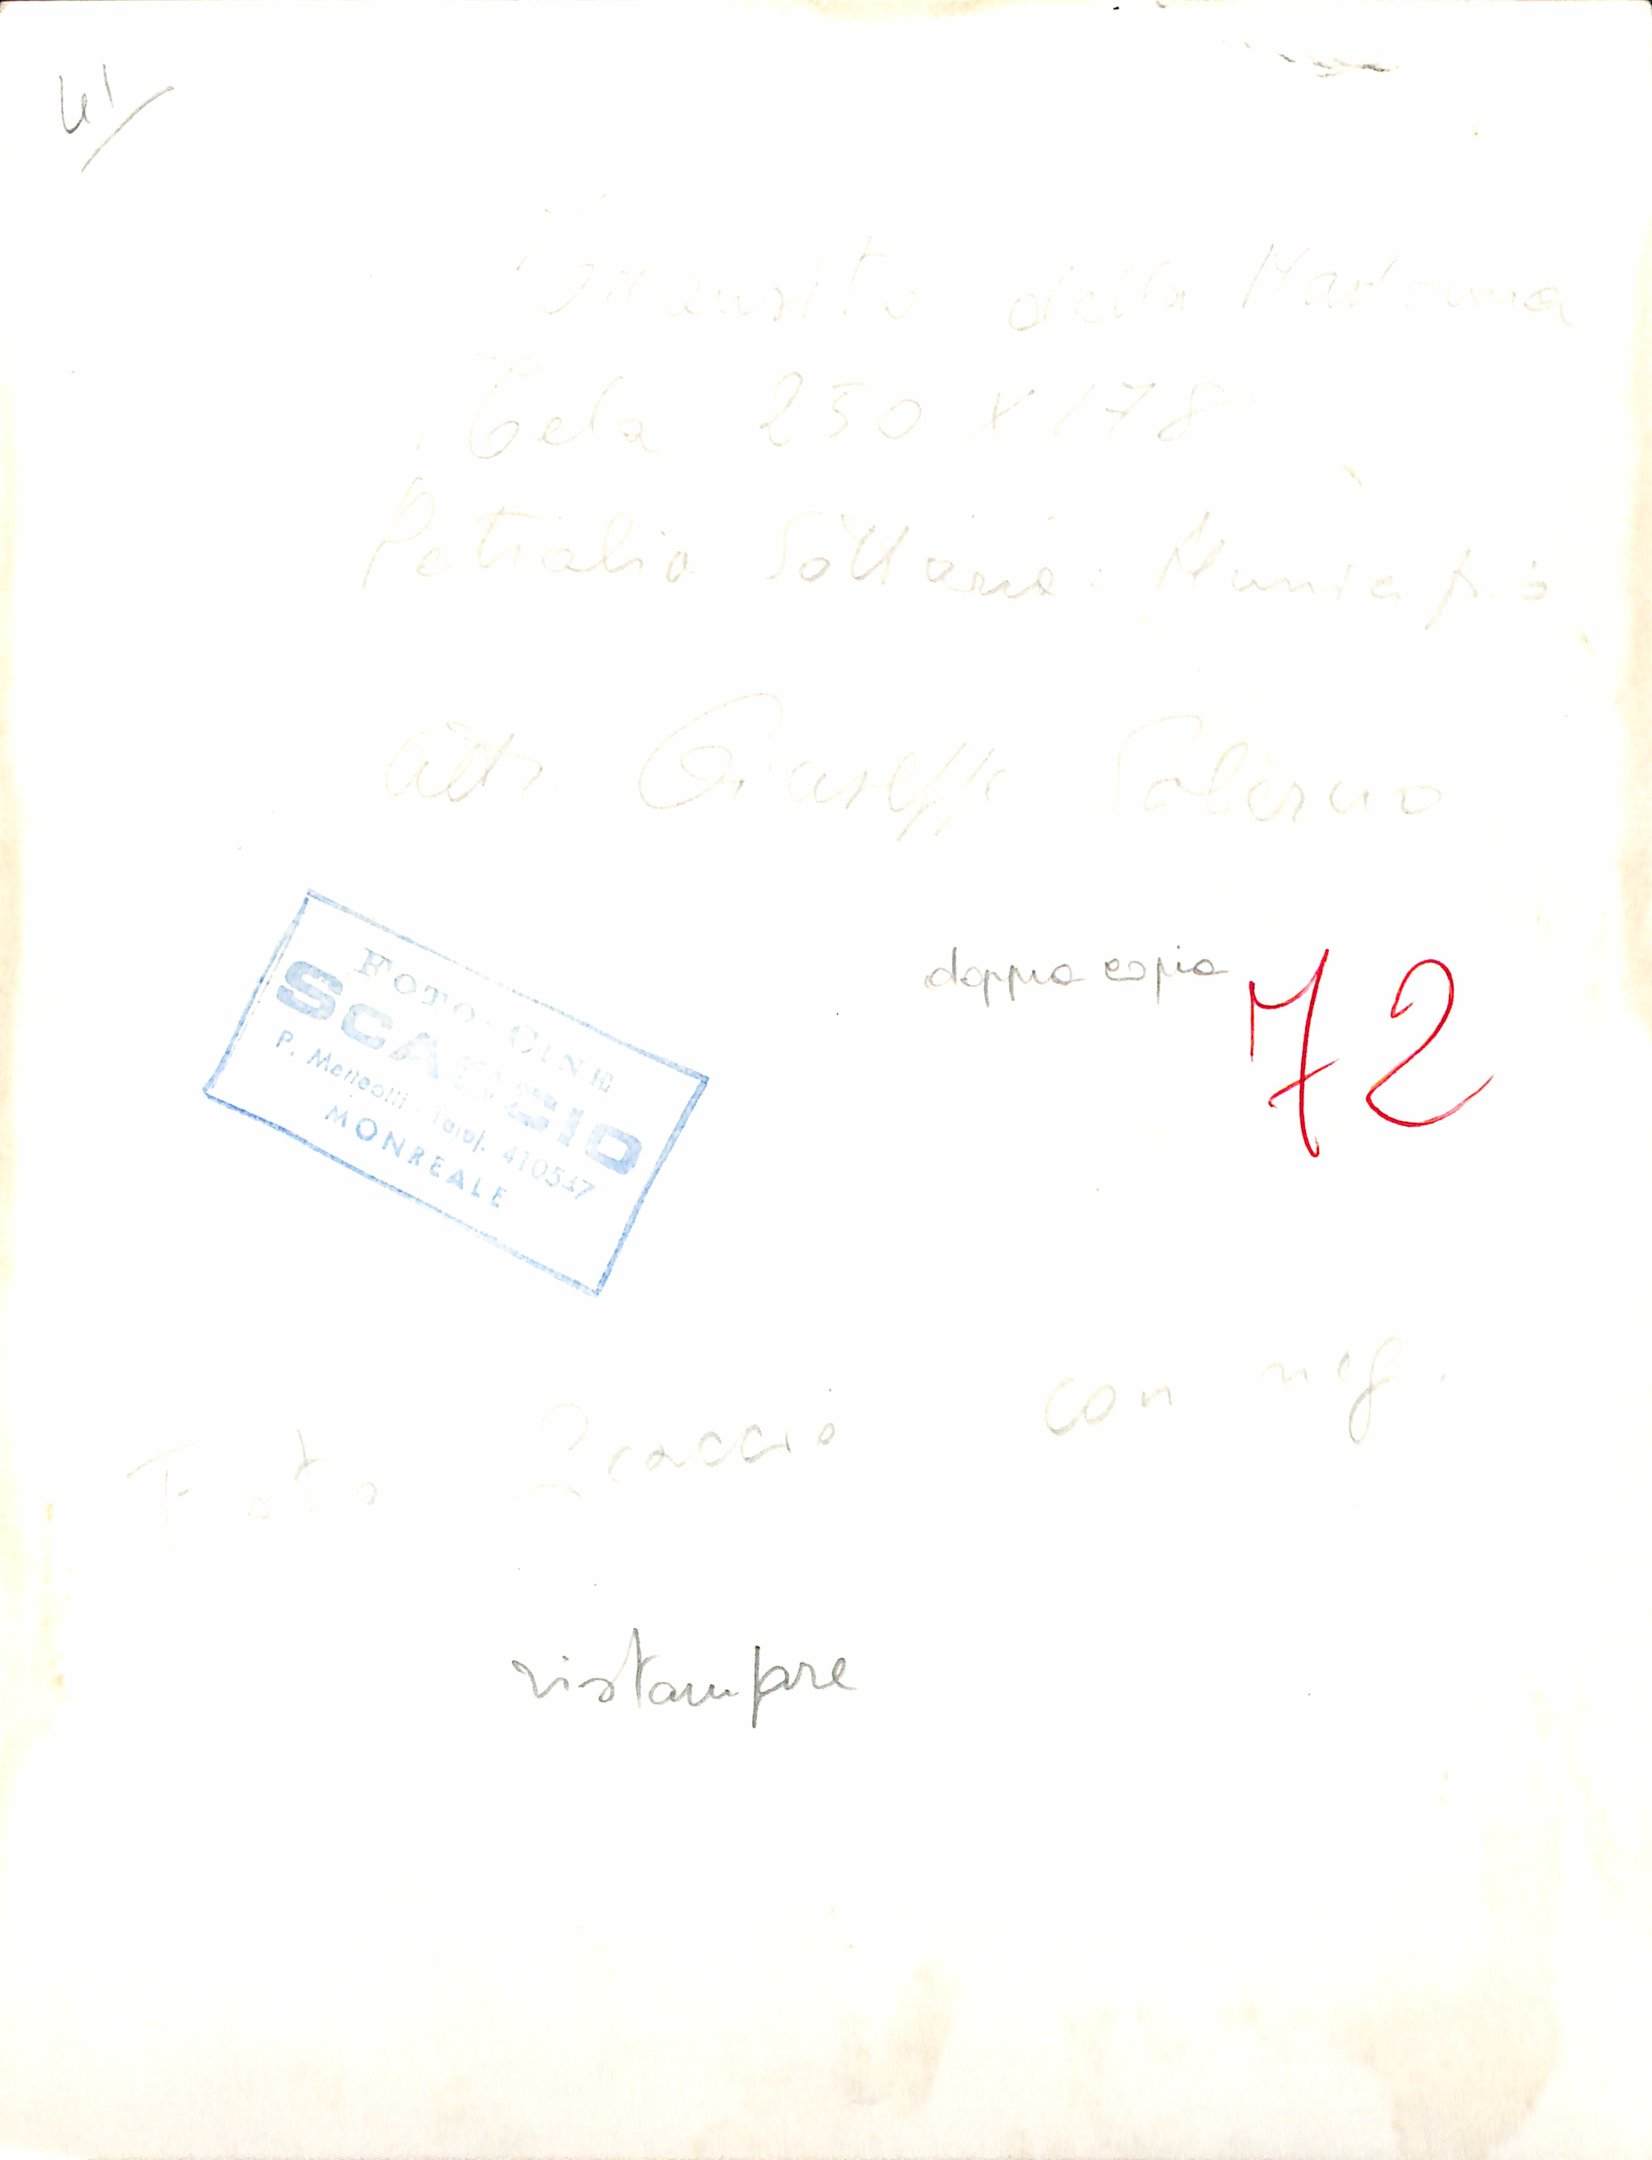 41
Transito della Madonna
Tela 250 x 178
Petralia Sottana: Municipio
attr. Giuseppe Salerno
doppia copia 72
FOTO-CINE
SCACCIO
P. Matteotti - Telef. 410547
MONREALE
Foto Scaccio con neg.
ristampre